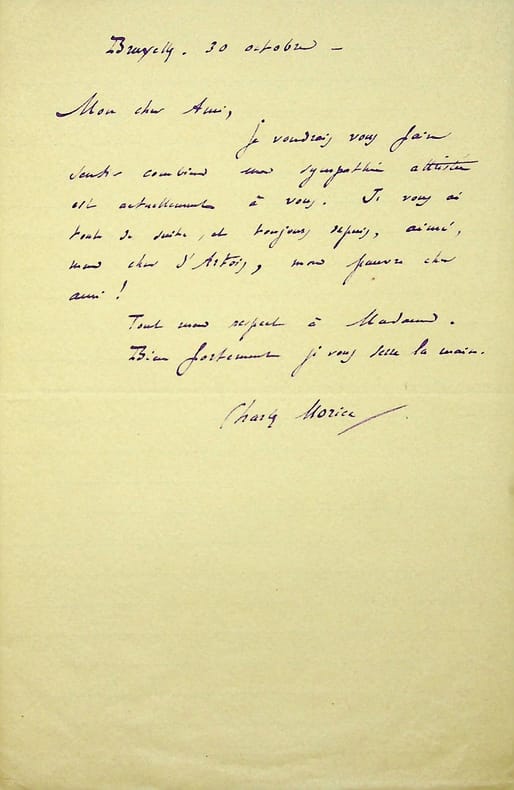 Bruxelles. 30 octobre –
Mon cher Ami,
je voudrais vous faire
sentir combien ma sympathie attristée
est actuellement à vous. Je vous ai
tout de suite, et toujours depuis, aimé,
mon cher d'Artois, mon pauvre cher
ami !
Tout mon respect à Madame.
Bien fortement je vous serre la main.
Charles Morice